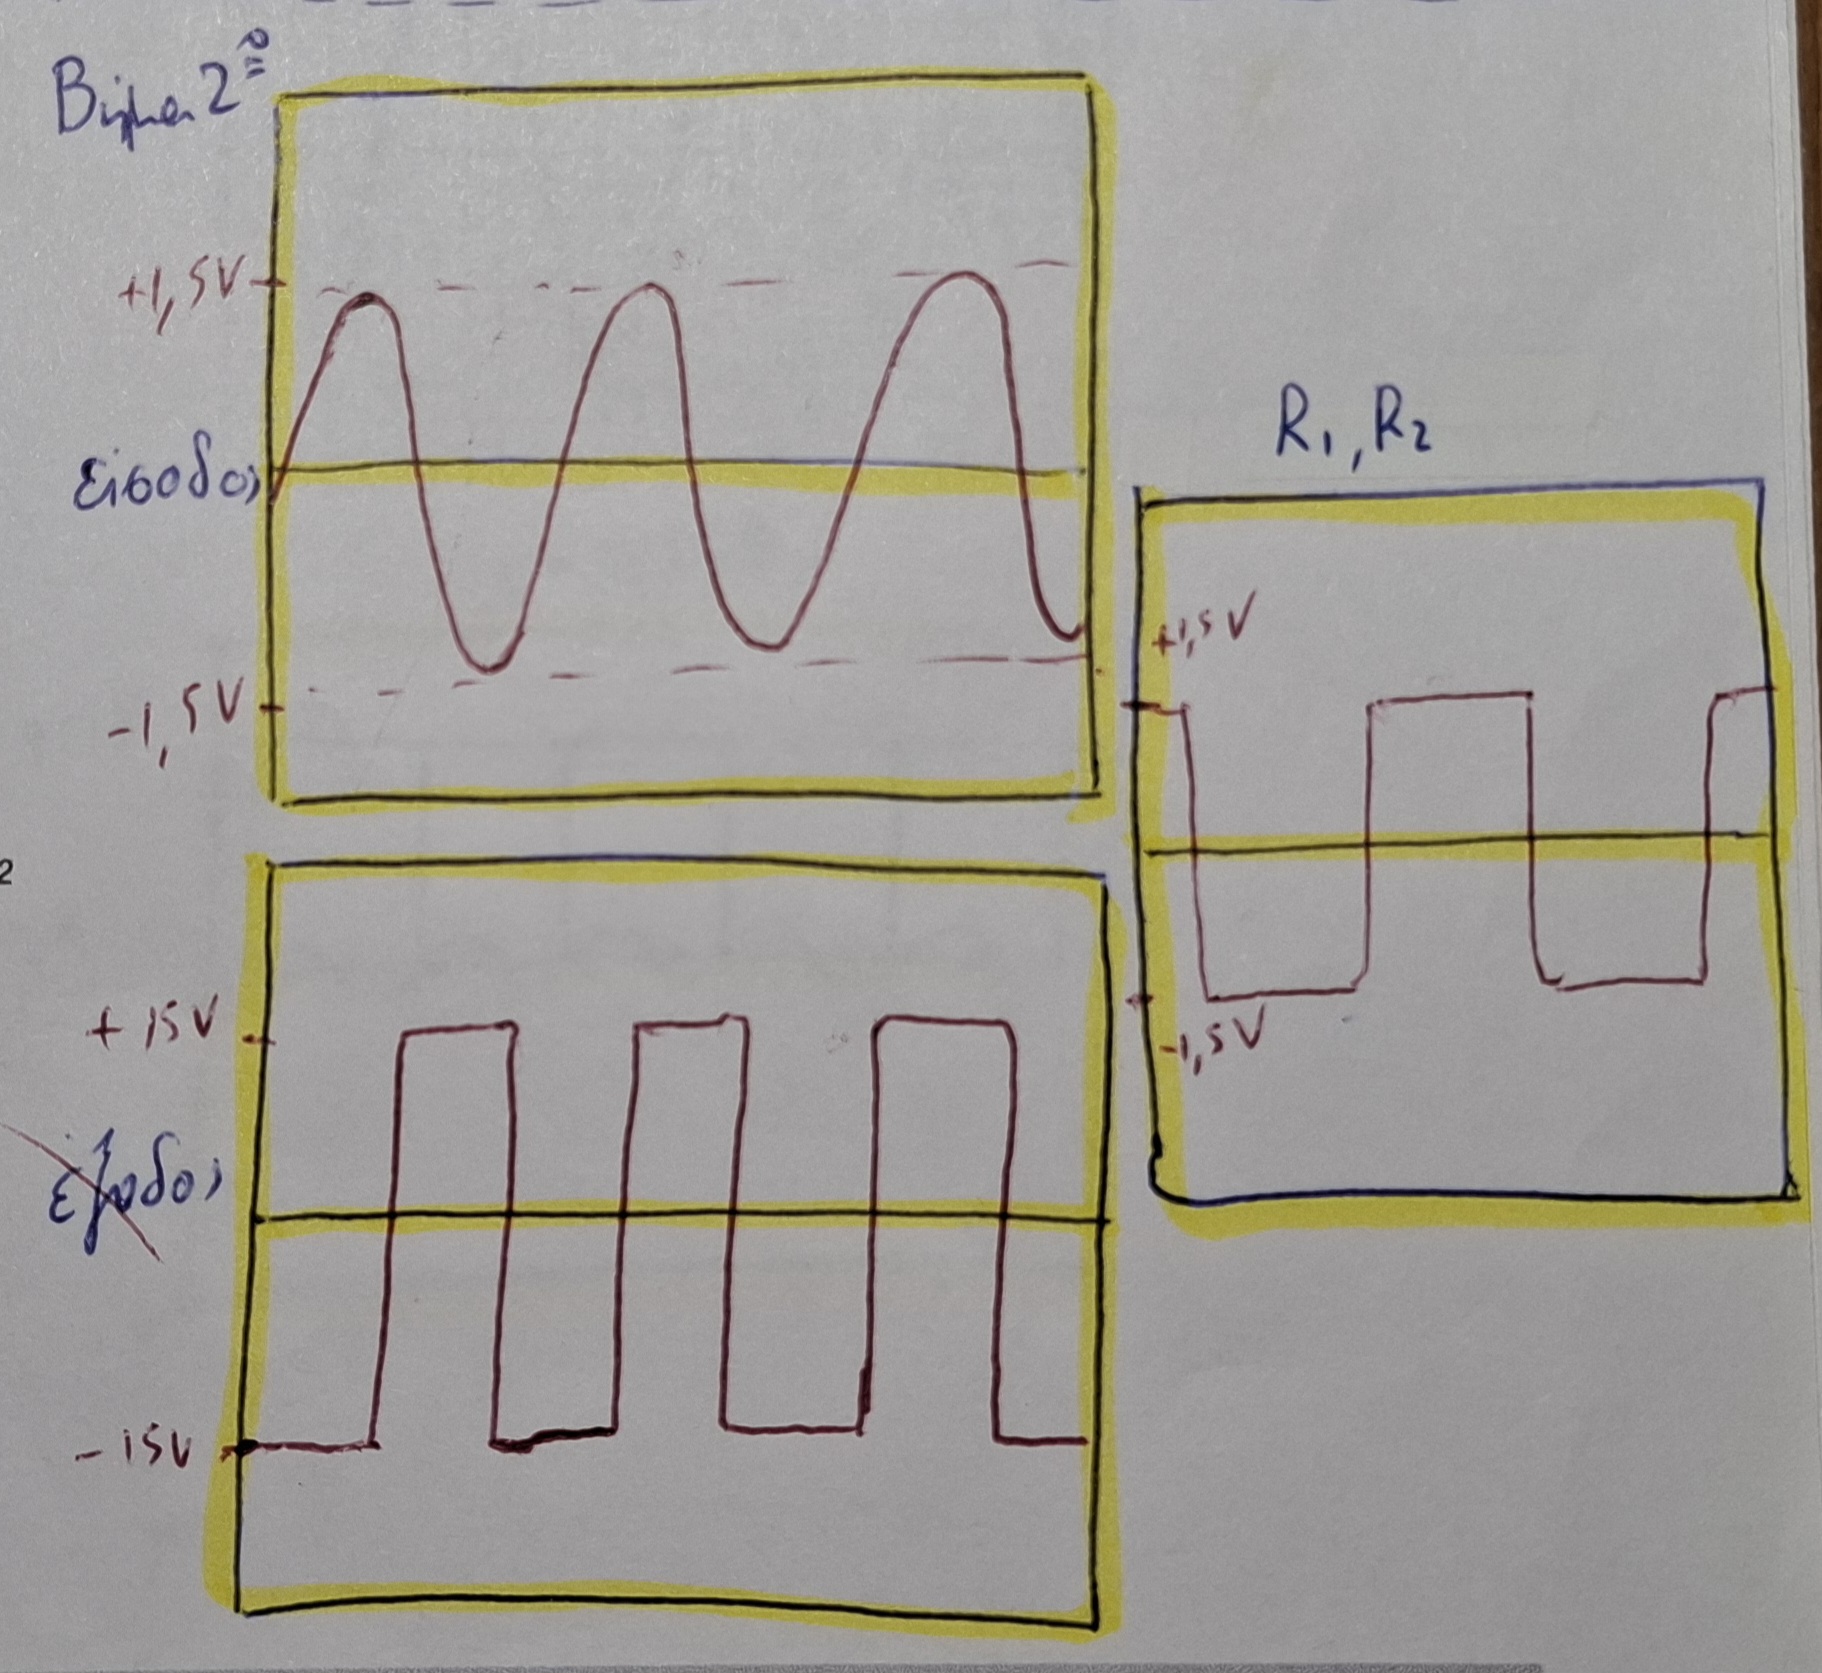 Βήμα 2º
+1,5V
είσοδος
-1,5V
R1, R2
+1,5V
-1,5V
2
+15V
έξοδος
-15V